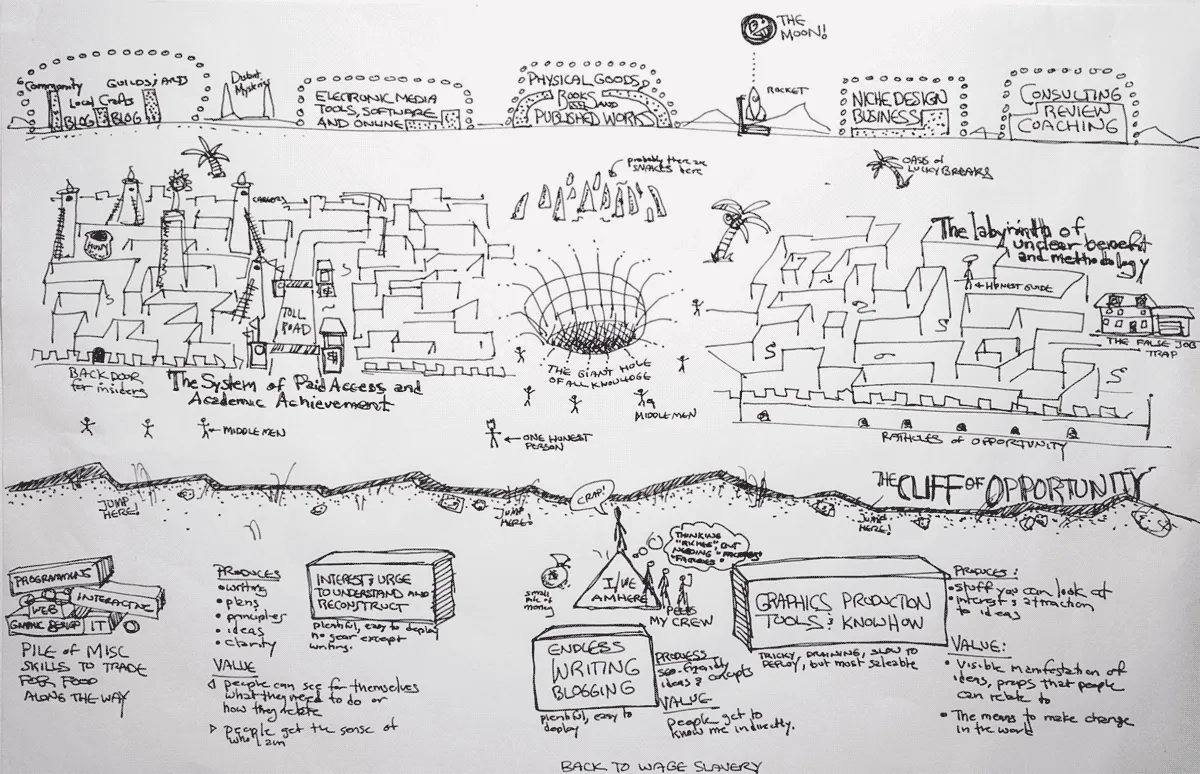 THE
MOON!
Community
GUILDS: ARD
Local Crafts
BLOG
BLOG
Dubat
Mysteries
ELECTRONIC MEDIA
TOOLS, SOFTWARE
AND ONLINE
PHYSICAL GOODS,
BOOKS
AND
PUBLISHED WORKS
ROCKET
NICHE DESIGN
BUSINESS
CONSULTING
REVIEW
COACHING
probably there are
SNAKES here
OASIS of
LUCKY BREAKS
CAREERS
TOLL
ROAD
BACK DOOR
for insiders
The System of Paid Access and
Academic Achievement
THE GIANT HOLE
OF ALL KNOWLEDGE
The labyrinth of
unclear benefit
and methodology
HONEST GUIDE
THE FALSE JOB
TRAP
RATHOLES of OPPORTUNITY
MIDDLEMEN
MIDDLEMEN
ONE HONEST
PERSON
THE CLIFF OF OPPORTUNITY
JUMP
HERE!
JUMP
HERE!
JUMP
HERE!
CRAP!
THINKING
"RICHES" BUT
NEEDING
small
pile of
money
I/WE
AM HERE
PEEPS
MY CREW
PROGRAMMING
WEB
INTERACTIVE
GRAPHIC DESIGN
IT
PILE OF MISC
SKILLS TO TRADE
FOR FOOD
ALONG THE WAY
PRODUCES
• writing
• plans
• principles
• ideas
• clarity
VALUE
people can see for themselves
what they need to do or
how they relate
people get the sense of
who I am
INTEREST & URGE
TO UNDERSTAND AND
RECONSTRUCT
plentiful, easy to deploy
no gear except
writing.
ENDLESS
WRITING
BLOGGING
plentiful, easy to
deploy
PRODUCES
seo-friendly
ideas & concepts
VALUE
people get to
know me indirectly.
GRAPHICS PRODUCTION
TOOLS & KNOWHOW
TRICKY, DRAINING, SLOW TO
DEPLOY, but most saleable
PRODUCES:
• stuff you can look at
• interest & attraction
to ideas
VALUE:
• Visible manifestation of
ideas, props that people
can relate to
• The means to make change
in the world
BACK TO WAGE SLAVERY